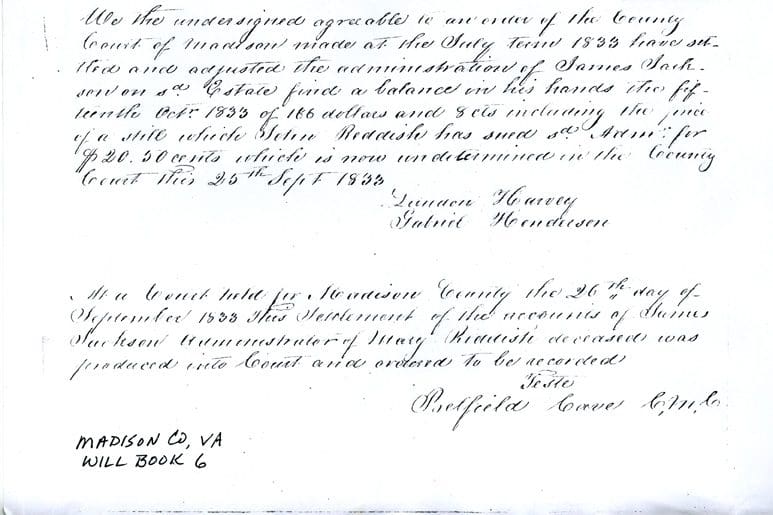 We the undersigned agreable to an order of the County
Court of Madison made at the July term 1833 have set-
tled and adjusted the administration of James Jack-
son on sd Estate find a balance in his hands the fif-
teenth Octr 1833 of 166 dollars and 8 cts including the price
of a still which John Reddish has sued sd Admr for
$20.50 cents which is now undetermined in the County
Court this 25th Sept 1833
Harvey
Gabriel Henderson
At a Court held for Madison County the 26th day of
September 1833 This Settlement of the accounts of James
Jackson Administrator of Mary Riddish deceased was
produced into Court and ordered to be recorded
Teste
Belfield Cave C.M.C.
MADISON CO, VA
WILL BOOK 6